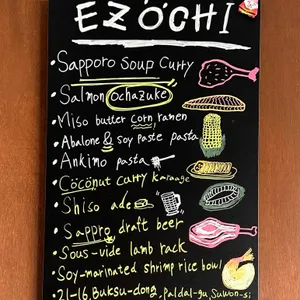 EZOCHI
· Sapporo Soup Curry
· Salmon Ochazuke
· Miso butter corn ramen
· Abalone & Soy Paste pasta
· Ankimo pasta
· Coconut Curry Karaage
· Shiso ade
· Sappro draft beer
· Sous-vide lamb rack
· Soy-marinated shrimp rice bowl
· 21-16, Buksu-dong, Paldal-gu, Suwon-si